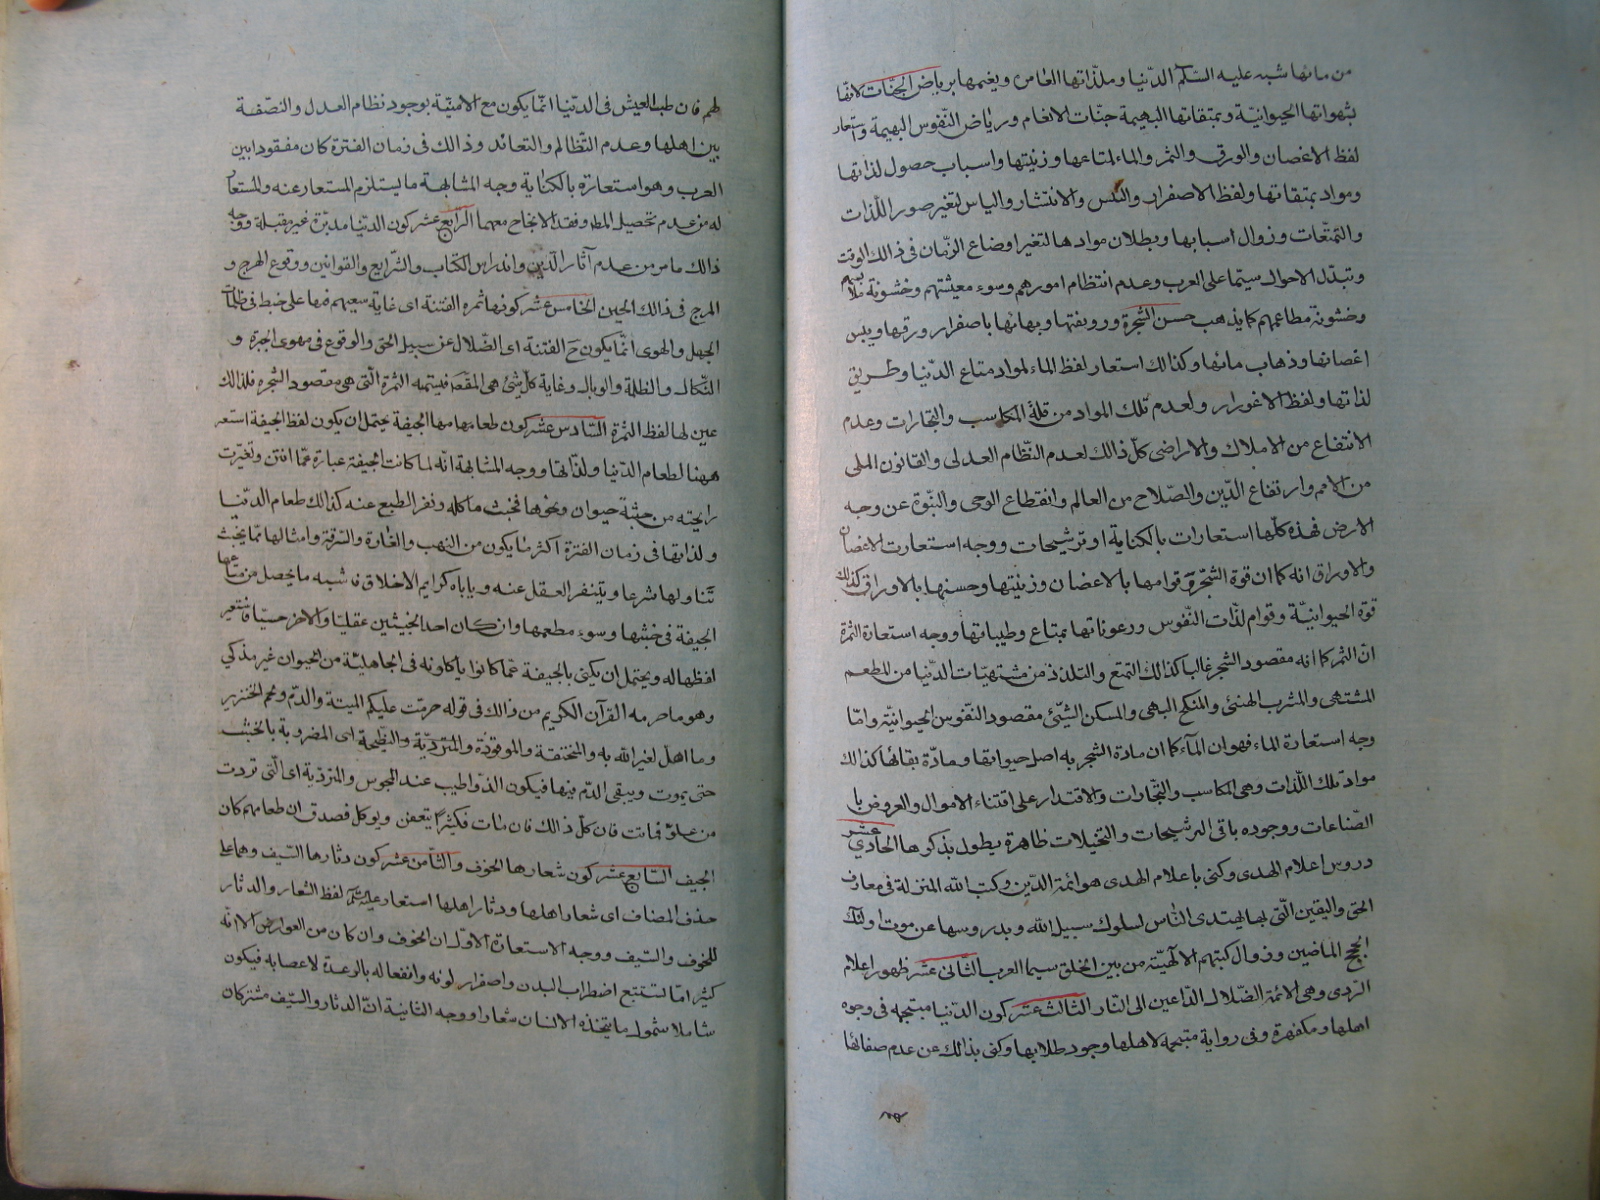 من مائها شبه عليه السّلم الدّنيا وملذّاتها الغامن ونعيمها برياض الجنّات لانّها
بشهواتها الحيوانيّة وبمتقاتها البهيمة جنّات الانعام ورياض النّفوس البهيمة واستعار
لفظ الاغصان والورق والثمر والماء لمتاعها وزينتها واسباب حصول لذاتها
ومواد بمتقاتها ولفظ الاصفرار والانتشار والياس لتغير صور اللّذات
والتمتّعات وزوال اسبابها وبطلان موادها لتغير اوضاع الزّمان فى ذالك الوقت
وتبدّل الاحوال سيّما على العرب وعدم انتظام امورهم وسوء معيشتهم وخشونة ملابسهم
وخشونة مطاعمهم كما يذهب حسن الشجرة ورونقها وبهائها باصفرار ورقها ويبس
اغصانها وذهاب مائها وكذالك استعار لفظ الماء لمواد متاع الدّنيا وطريق
لذاتها ولفظ الاغورار ولعدم تلك المواد من قلة المكاسب والتجارات وعدم
الانتفاع من الاملاك والاراضى كلّ ذالك لعدم النّظام العدلى والقانون الملى
من الامم وارتفاع الدّين والصّلاح من العالم وانقطاع الوحى والنبّوة عن وجه
الارض فهذه كلّها استعارات بالكناية او ترشيحات ووجه استعارت الاغصان
والاوراق انه كما ان قوة الشجرة قوامها بالاغصان وزينتها وحسنها بالاوراق كذالك
قوة الحيوانيّة وقوام لذّات النّفوس ورعوناتها بمتاع وطيباتها ووجه استعارة الثمرة
انّ الثمر كما انه مقصود الشجر غالبا كذالك التمتع والتلذذ من مشتهيّات الدّنيا من المطعم
المشتهى والمشرب الهنئى والمنكح البهى والمسكن الشّئى مقصود النّفوس الحيوانيّة وامّا
وجه استعارة الماء فهو ان المآء كما ان مادة الشجر به اصل حيواتها ومادّة بقائها كذالك
مواد تلك اللّذات وهى المكاسب والتّجارات والاقتدار على اقتناء الاموال والعروض با
الصّناعات ووجوده باقى الترشيحات والتخيلات ظاهرة يطول بذكرها الحادي عشر
دروس اعلام الهدى وكنى باعلام الهدى هو ائمة الدّين وكتب الله المنزلة فى معارف
الحق واليقين الّتى بها يهتدى النّاس لسلوك سبيل الله وبدروسها عن موت اولئك
الحجج الماضين وزوال كتبهم الالهيّة من بين الخلق سيما العرب الثّانى عشر ظهور اعلام
الرّدى وهى الائمة الضّلال الدّاعين الى النّار الثّالث عشر كون الدّنيا متجهمه فى وجوه
اهلها ومكفهرة وفى رواية متجهمه لاهلها وجود طلابها وكنى بذالك عن عدم صفائها
لهم فان طيب العيش فى الدّنيا انّما يكون مع الامنيّة بوجود نظام العدل والنصّفة
بين اهلها وعدم التّظالم والتعاند وذالك فى زمان الفترة كان مفقودا بين
العرب وهو استعارة بالكناية ووجه المشابهة ما يستلزم المستعار عنه والمستعار
له من عدم تحصيل المط وفقد الانجاح معهما الرّابع عشر كون الدّنيا مدبّرة غير مقبلة ووجه
ذالك ما مر من عدم آثار الدّين واندراس الكتاب والشّرايع والقوانين ووقوع الهرج و
المرج فى ذالك الحين الخامس عشر كونها ثمره الفتنة اى غاية سعيهم فيها على خبط فى ظلمات
الجهل والهوى انّما يكون حَ الفتنة اى الضّلال عن سبيل الحق والوقوع فى مهوى الحيرة و
النّكال والظلمة والوبال وغاية كلّ شئ هى المقصَ فيشمه الثمرة الّتى هى مقصود الشجره فلذالك
عين لها لفظ الثمرة السّادس عشر كون طعامها الجيفة يحتمل ان يكون لفظ الجيفة استعير
ههنا لطعام الدّنيا ولذّاتها ووجه المشابهة انّه لما كانت الجيفة عبارة عمّا انتن وتغيّرت
رايحته من جثة حيوان ونحوها فخبث ماكله ونفر الطبع عنه كذالك طعام الدّنيا
ولذاتها فى زمان الفترة اكثر ما يكون من النهب والغارة والسّرقة وامثالها ممّا يخبث
تناولها شرعا ويتنفر العقل عنه ويأباه كرايم الاخلاق فاشبه ما يحصل من متاعها
الجيفة فى خبثها وسوء مطعمها وان كان احد الخبيثين عقليّا والاخر حسيّا فاستعير
لفظها له ويحتمل ان يكنى بالجيفة عمّا كانوا ياكلونه فى الجاهليّة من الحيوان غير مذكي
وهو ما حرمه القرآن الكريم من ذالك فى قوله حرمّت عليكم الميتة والدّم ولحم الخنزير
وما اهلّ لغير الله به والمنخنقة والموقوذة والمتردّية والنطيحة اى المضروبة بالخشب
حتى يموت ويبقى الدّم فيها فيكون الذّ واطيب عند المجوس والمتردّية اى الّتى تردت
من علوّ فماتت فان كلّ ذالك فان مات فكثيراً يتعفن ويوكل فصدق ان طعامهم كان
الجيف السّابع عشر كون شعارها الخوف والثّامن عشر كون دثارها السّيف وهما على
حذف المضاف اى شعار اهلها ودثار اهلها استعار عليه السّلم لفظ الشعار والدثار
للخوف والسّيف ووجه الاستعارة الاول ان الخوف وان كان من العوارض الا انّه
كثيرا ما يستتبع اضطراب البدن واصفرار لونه وانفعاله بالرعدة لاعصابه فيكون
شاملا شمول ما يتخذه الانسان شعارا ووجه الثانية انّ الدثار والسّيف مشتركان